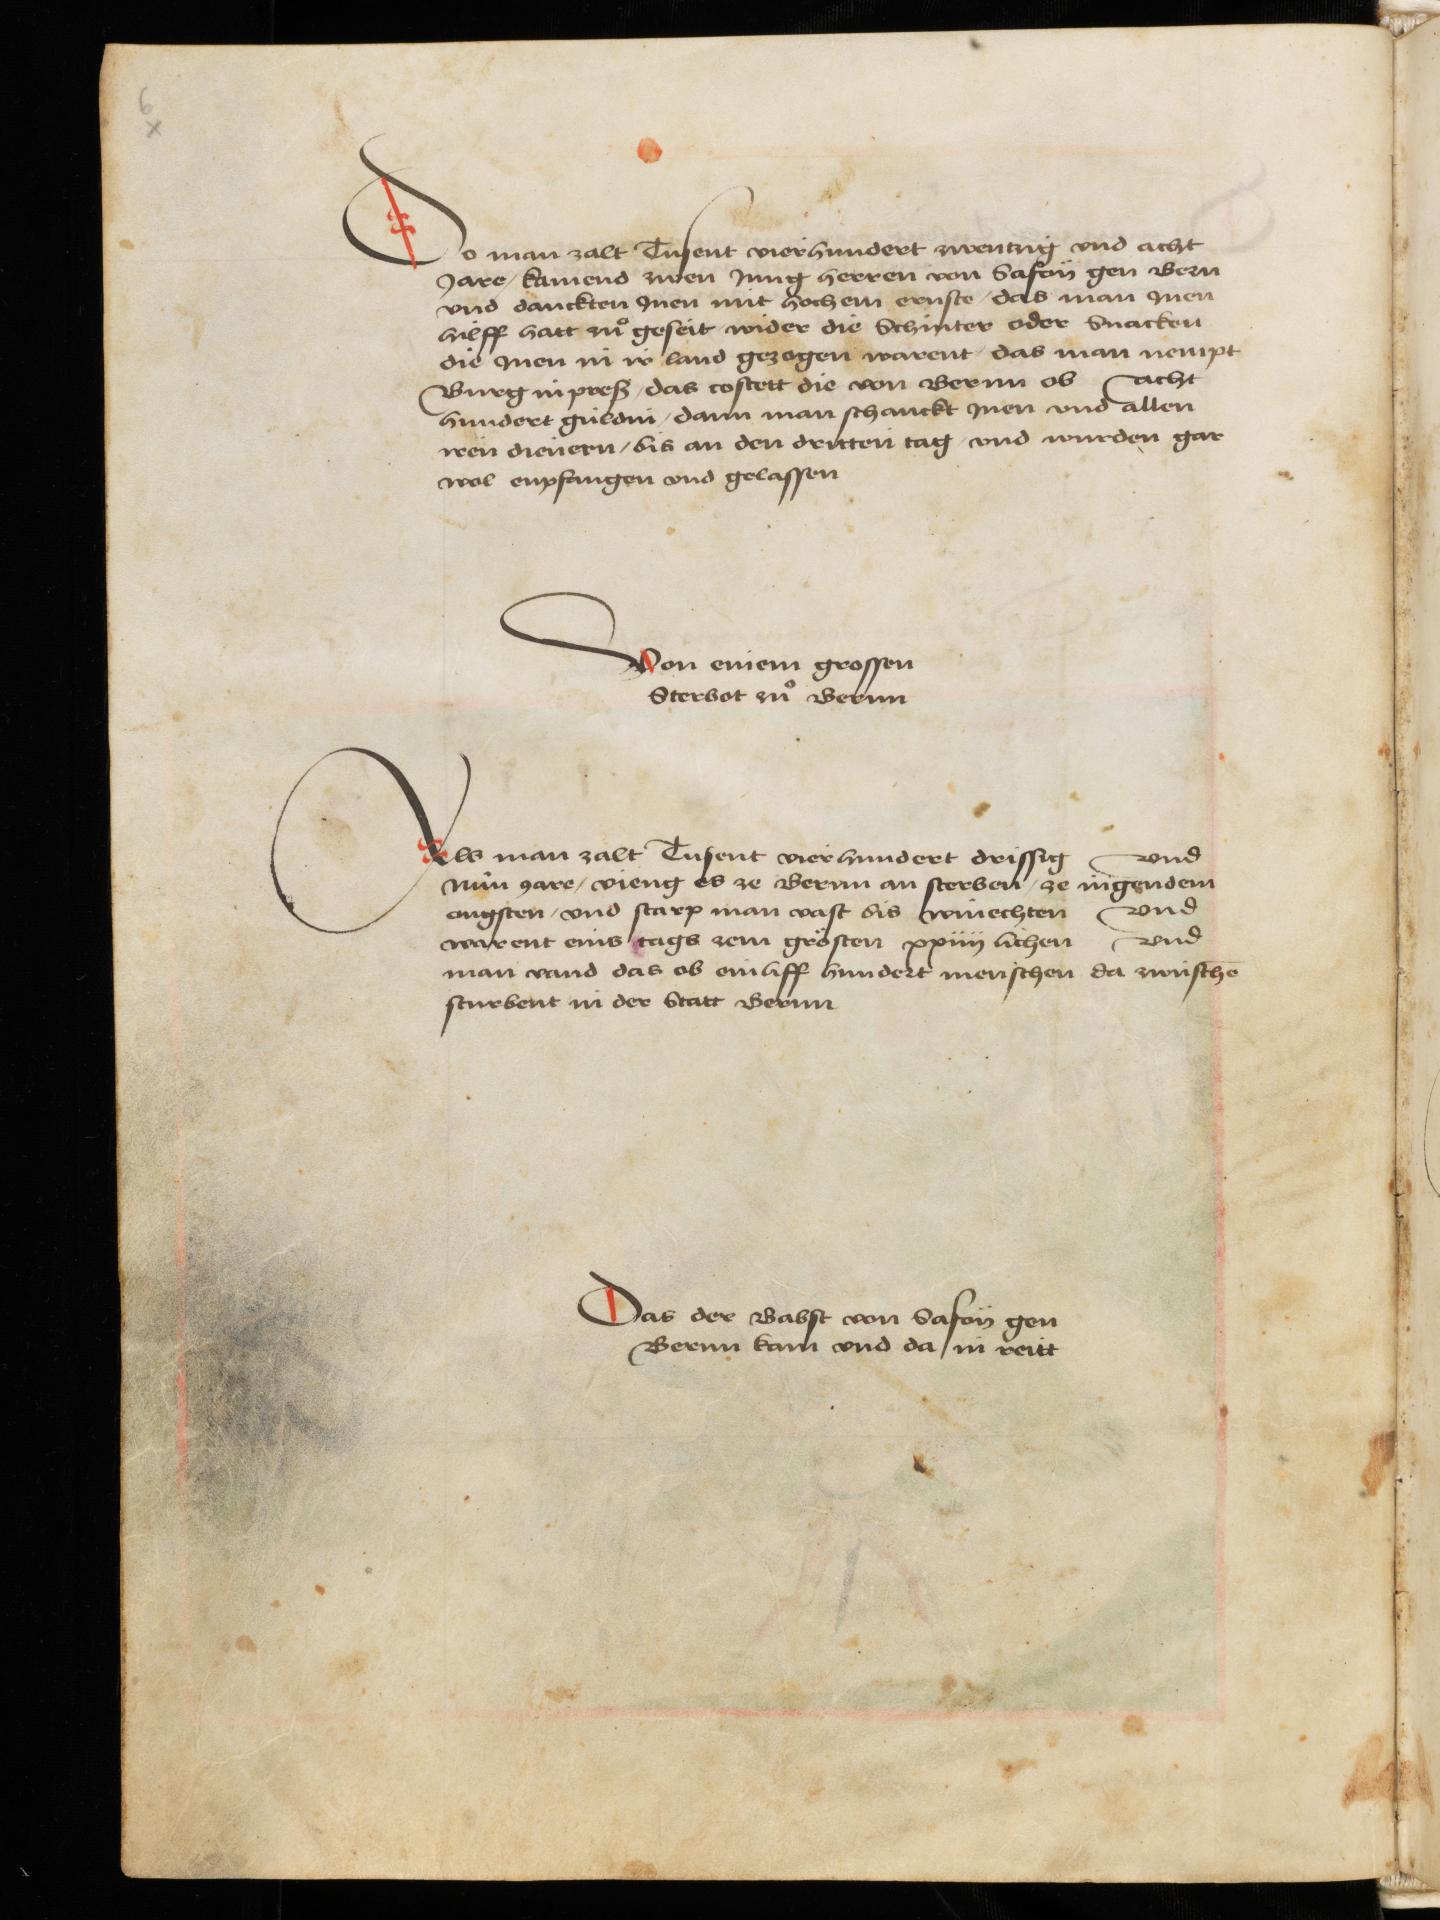 6
x
Do man zalt Tusent vierhundert zwentzig vnd acht
Jare / kamend zwen Jung herren von Safoÿ gen Bern
vnd danckten Jnen mit hochem ernste / das man Jnen
hilff hatt zuͦ geseit wider die Schinter oder Snacken
die Jnen in ir land gezogen warent / das man nempt
Burg in preß / das costett die von Bernn ob acht
hundert guldin / dann man schanckt Jnen vnd allen
iren dienern / bis an den dritten tag / vnd wurden gar
wol enpfangen vnd gelassen
Von einem grossen
Sterbot zuͦ Bernn
Als man zalt Tusent vierhundert drissig vnd
nún Jare / vieng es ze Bernn an sterben / ze ingendem
ougsten / vnd starp man vast bis winechten vnd
warent eins tags zem grösten xxiiij lichen vnd
man vand das ob einliff hundert menschen da zwúschē
sturbent in der Statt Bernn
Das der Babst von Safoÿ gen
Bernn kam vnd da in reitt